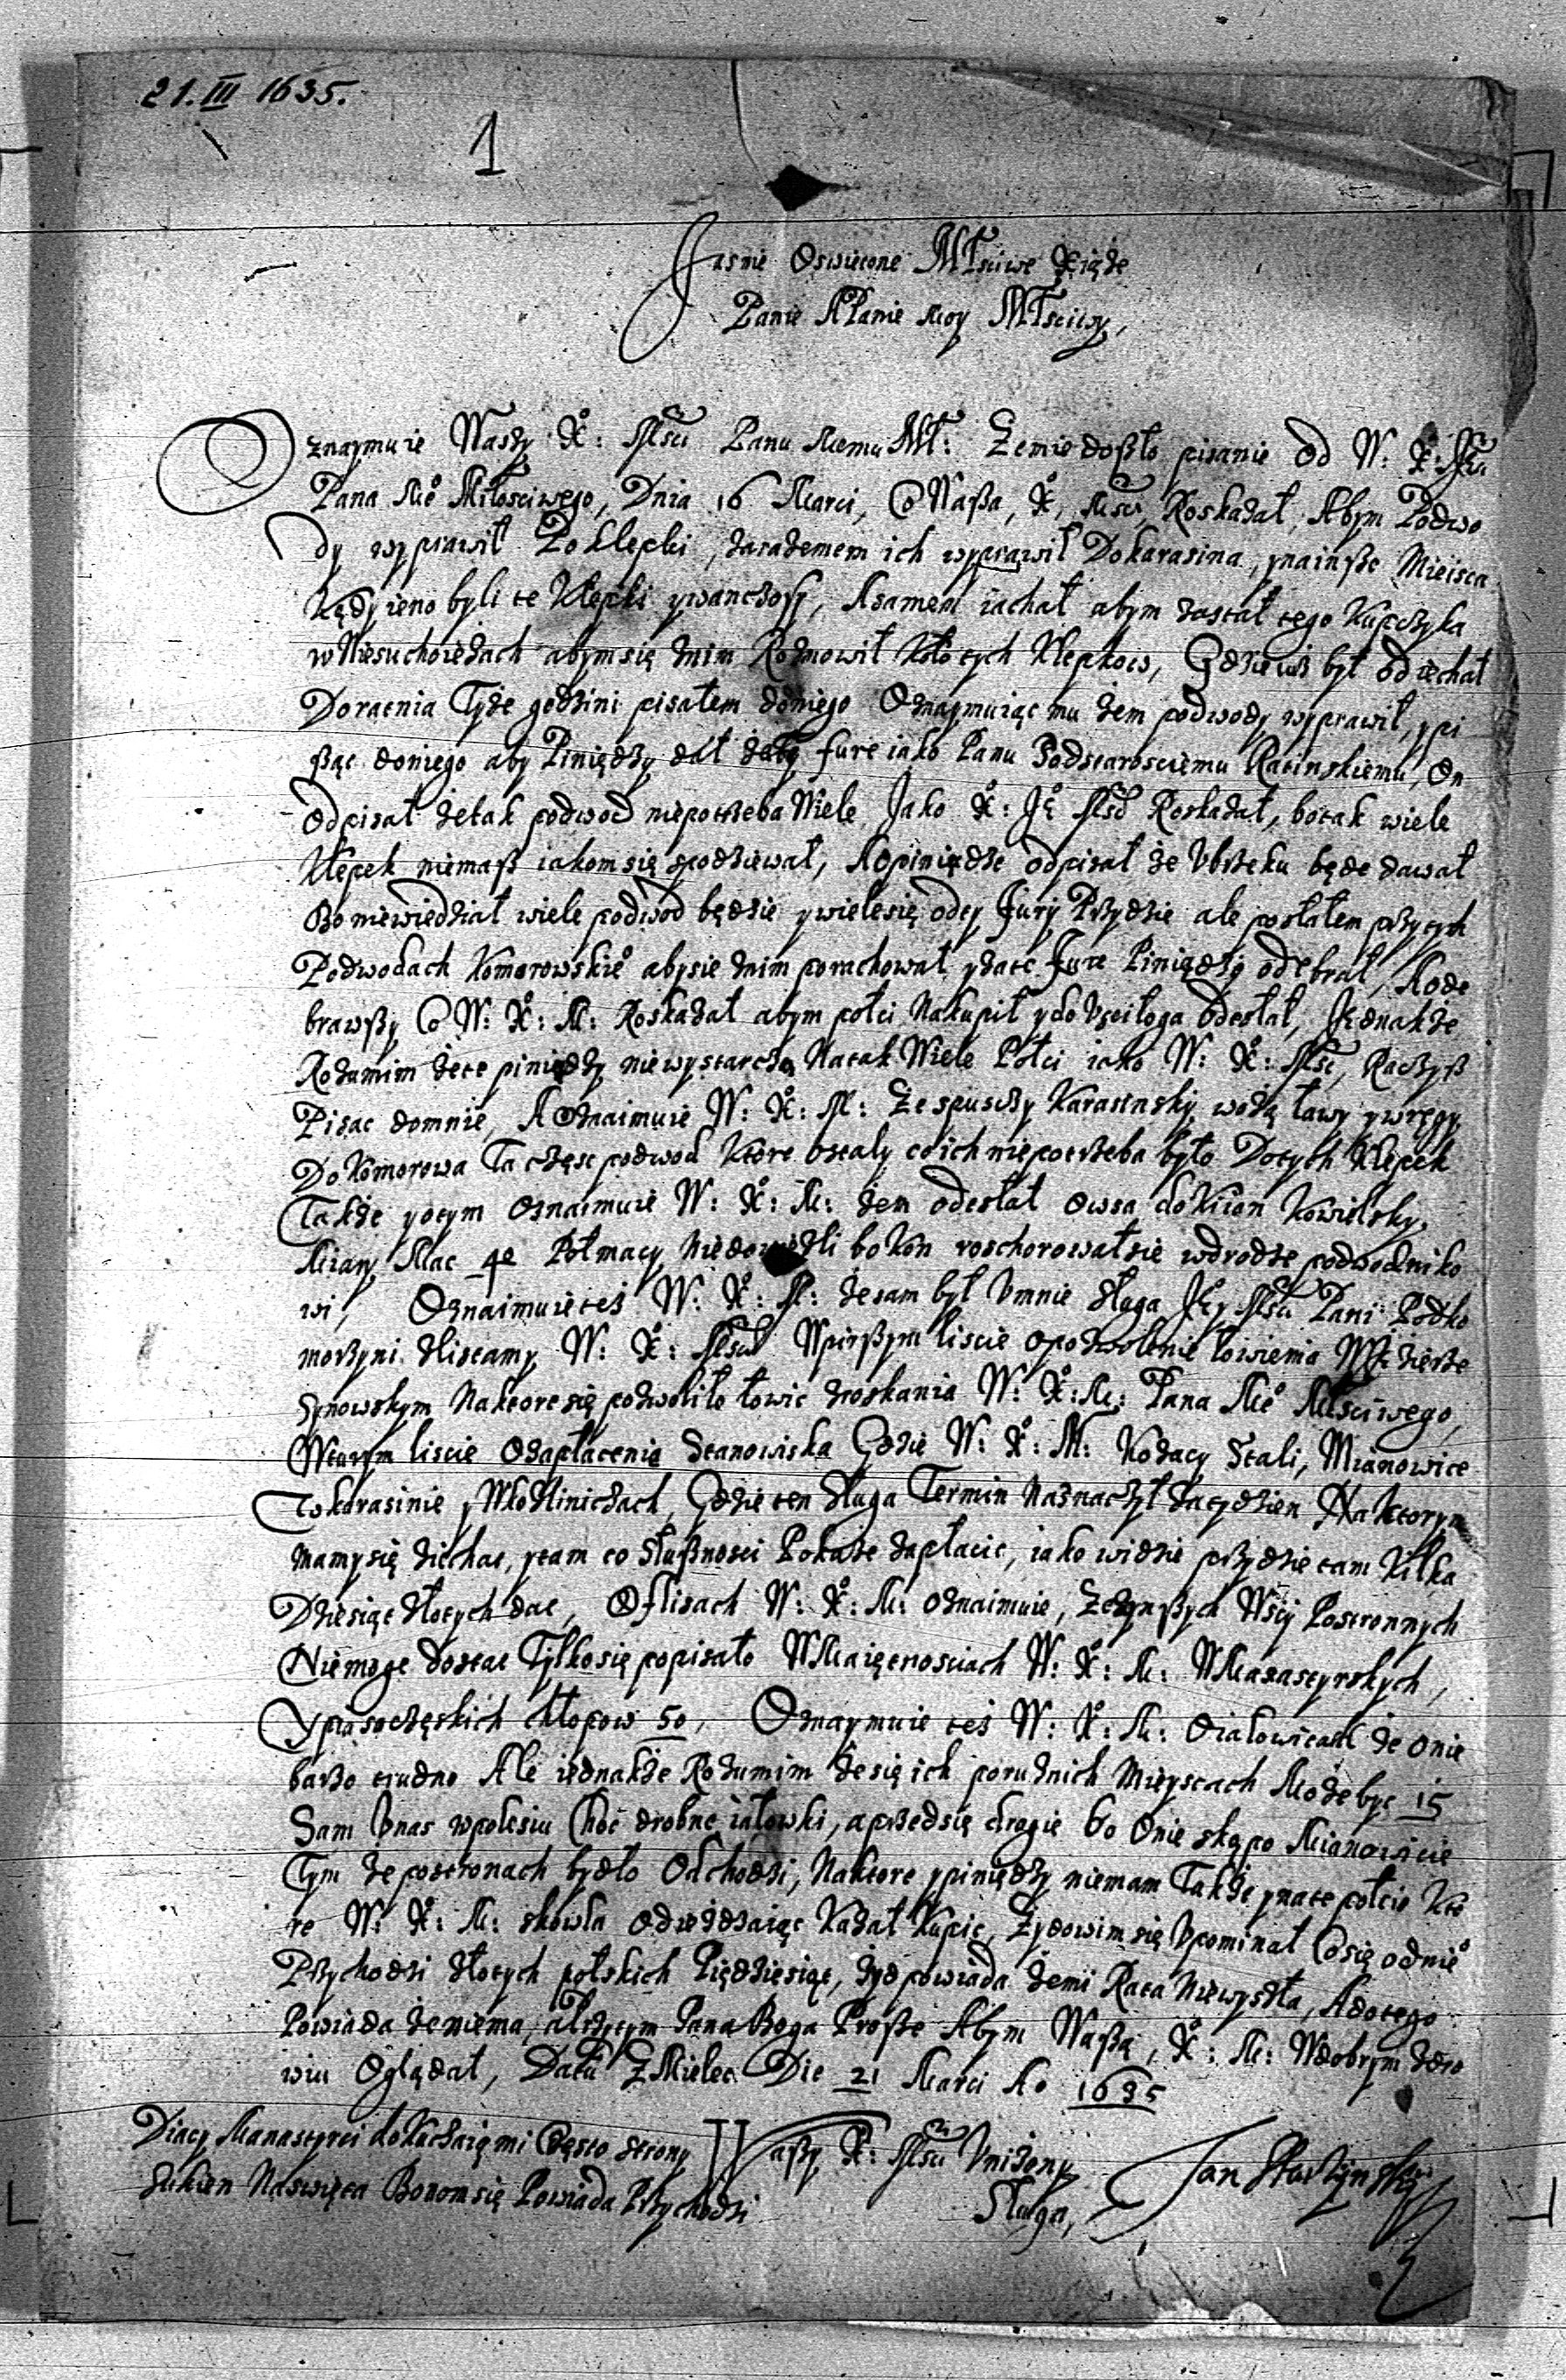 21. III 1635.
1
Jasnie Oswiecone Młsciwe Xiąże
Panie APanie moy Młsciwy,
Oznaymuie Waszy X: Msci Panu memu Mł: Zemie doszło pisanie Od W: X: Msci
Pana Mego Miłosciwego, Dnia 16 Marci, Co Wasza, X, Mść, Roskazał, Abym Podwo
dy wyprawił Po klepki, zarazemem ich wyprawił Dokarasina, ynainsze Mieisca
Kędy ieno byli te Klepki, Asamem iachał abym zastał tego Kupczyka
wNiesuchoiezach abymsię znim Rozmowił Koło tych Klepkow, Gdzie iusz był odiechał
Doracnia Tyże godzini pisałem doniego Oznaymuiąc mu zem podwody wyprawił, ypi
sząc doniego aby Piniędzy dał zatę fure iako Panu Podstarosciemu Racinskiemu, On
Odpisał żetak podwod niepotrzeba Wiele Jako X: Je Msc Roskazał, botak wiele
Klepek niemasz iakomsię spodziewał, Aopiniędze odpisał że Ubrzeku będe dawał
Boniewiedział wiele podwod będzie ywielesię odey fury Przydzie ale posłałem przytych
Podwodach Komorowskiego abysie znim porachował yzate fure Piniędzy odebrał, Aode
brawszy Co W: X: M: Roskazał abym połci Nakupił ydo Usciługa Odesłał, Jednakże
Rozumim żete piniędzy niewystarczą Natak Wiele Połci iako W: X: Msc, Raczysz
Pisac domnie, A Oznaimuie W: X: M: Ze spusczy Karasinsky wożą ławy ywręgy
DoKomorowa Ta częsc podwod Ktore Ostały co ich niepotrzeba było Dotych Klepek
Także yotym Oznaimuie W: X: M: zem odesłał Owsa do Kowielsky,
Miary Mac 4e Połmacy Niedowiezli bo Kon roschorowałsie wdrodze podwodniko
wi, Oznaimuie tesz W: X: M: że sam był Umnie Sługa Jey Msci Pani Podko
morzyni zlistamy W: X: Msci Wpirszym liscie opozwolenie łowienia W iezierze
Synowskym Naktore się pozwoliło łowic zroskania W: X: M: Pana Mego Młsciwego,
Wturym liscie Ozapłacenie Stanowiska Gdzie W: X: M: Kozacy Stali, Mianowice
Wkarasinie y Gdzie ten Sługa Termin Naznaczył zatydzien Naktorym
mamysię ziechac, ytam co Słusznosci Pokaże zapłacic, iako widzie przydzie tam Kilka
Dziesiąt złotych dac, O flisach W: X: M: oznaimuie, Ze Wsiy Postronnych
Niemoge dostac Tylkosię popisało WMaiętnosciach W: X: M: WManastyrskych,
Chłopow 50, Oznaymuie tesz W: X: M: że onie
barzo trudno Ale iednakże Rozumim żesię ich porużnich Mieyscach Możebyc 15
Sam Unas wpolesiu Choc drobne iałowki, aprzedsię drogie bo Onie skąpo Mianowicie
Tym że postronach bydło Odchodzi, Naktore ypiniędzy niemam Także ynate połcie Kto
re W: X: M: skowla odieżdzaiąc Kazał Kupic, Żydowim się Upominał Cosię odniego
Przychodzi złotych polskich Piędziesiąt, żyd powiada żemu Rata Niewyszła, Adotego
Powiada żeniema, Pana Boga Prosze Abym Waszą, X: M: Wdobrym zdro
wiu Oglądał, Datu ZMielec Die 21 Marci Ao 1635
Diacy Manastyrci dokuczaią mi Często strony
Sukien Naswięta Bonomsię Powiada Przychodzi
Waszy X: Msci Unizony
Sługa,
Jan